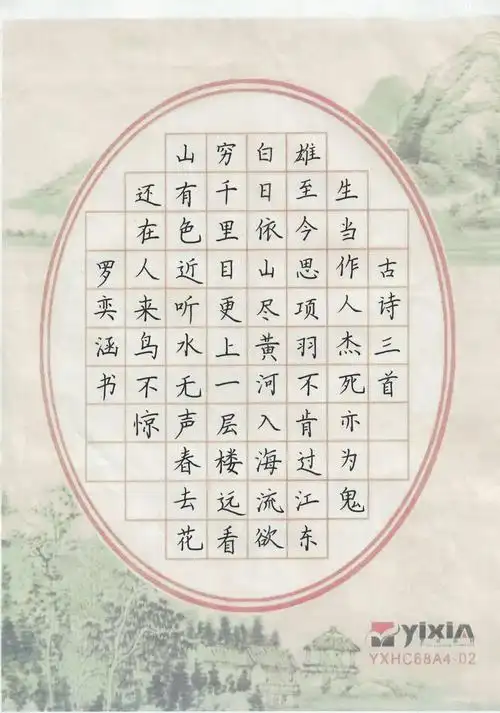 古诗三首
生当作人杰死亦为鬼
雄至今思项羽不肯过江东
白日依山尽黄河入海流欲
穷千里目更上一层楼远看
山有色近听水无声春去花
还在人来鸟不惊
罗奕涵书
yixin
YXHC68A4-02